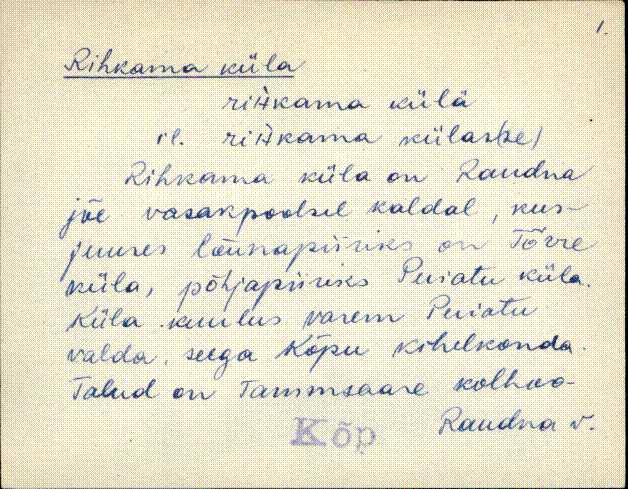 1.
Rihkama küla
riHkama külä
il. riHkama külas(se)
Rihkama küla on Raudna
jõe vasakpoolsel kaldal, kus-
juures lõunapiiriks on Tõrre
küla, põhjapiiriks Puiatu küla.
Küla kuulus varem Puiatu
valda, seega Kõpu kihelkonda.
Talud on Tammsaare kolhoo-
Raudna v.
Kõp